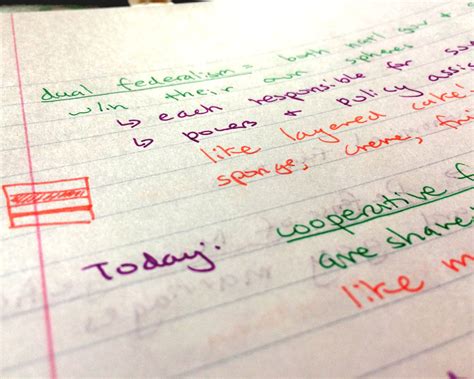 dual federalism = both nat'l gov +
w/in their own spheres
↳ each responsible for
↳ powers + policy
like layered cake!
sponge, creme,
Today: cooperative
are
like